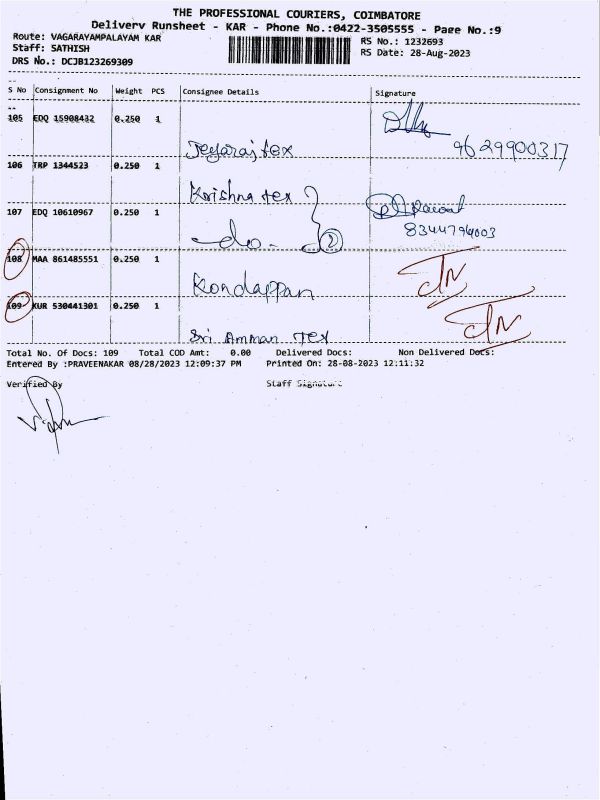 THE PROFESSIONAL COURIERS, COIMBATORE
Delivery Runsheet - KAR - Phone No.:0422-3505555 - Page No.:9
Route: VAGARAYAMPALAYAM KAR
RS No.: 1232693
Staff: SATHISH
RS Date: 28-Aug-2023
DRS No.: DCJB123269309
S No Consignment No Weight PCS Consignee Details Signature
105 EDQ 15908432 0.250 1
Jeyaraj tex 9629900317
106 TRP 1344523 0.250 1
Krishna tex
107 EDQ 10610967 0.250 1
-do- 2 8344794003
108 MAA 861485551 0.250 1
Kondappan
109 KUR 530441301 0.250 1
Sri Amman Tex
Total No. Of Docs: 109 Total COD Amt: 0.00 Delivered Docs: Non Delivered Docs:
Entered By :PRAVEENAKAR 08/28/2023 12:09:37 PM Printed On: 28-08-2023 12:11:32
Verified By Staff Signature